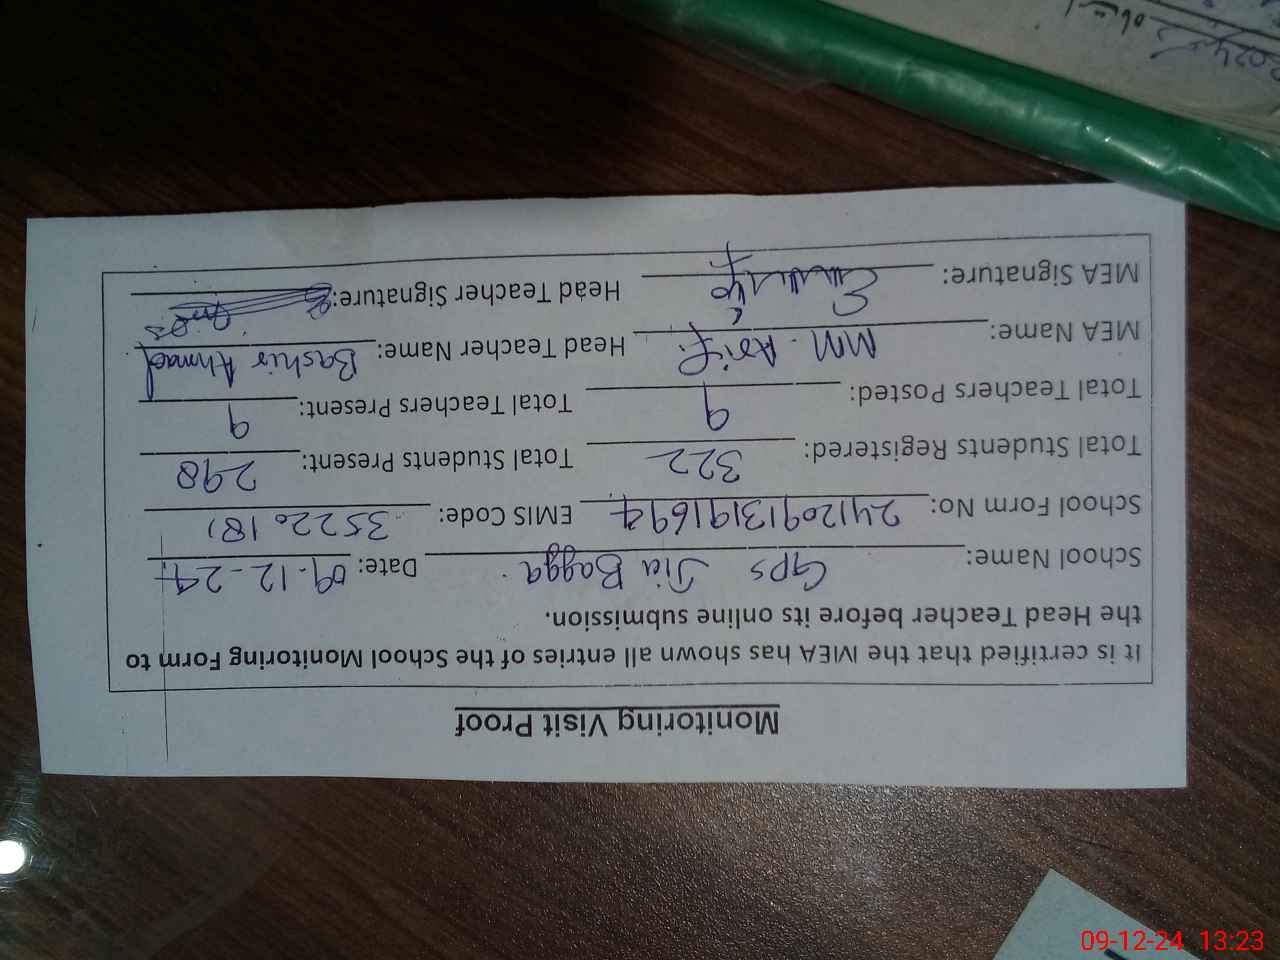 Monitoring Visit Proof
It is certified that the MEA has shown all entries of the School Monitoring Form to
the Head Teacher before its online submission.
School Name: GPS Jia Bagga Date: 09-12-24
School Form No: 24120913191694 EMIS Code: 35220181
Total Students Registered: 322 Total Students Present: 298
Total Teachers Posted: 9 Total Teachers Present: 9
MEA Name: MM. Asif Head Teacher Name: Bashir Ahmad
MEA Signature: Head Teacher Signature:
09-12-24 13:23